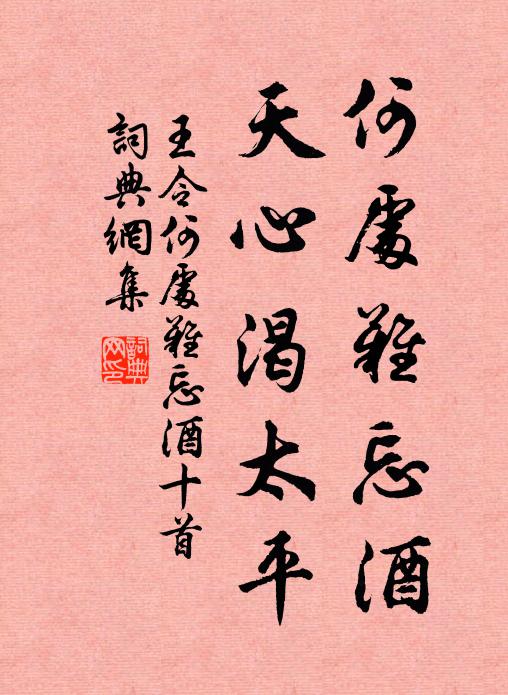 何處難忘酒
天心渴太平
王令何處難忘酒十首
詞典網集
詞典網印